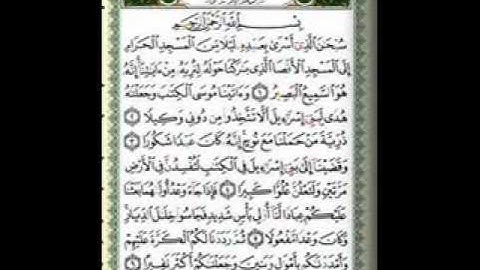 بِسْمِ اللَّهِ الرَّحْمَٰنِ الرَّحِيمِ
سُبْحَٰنَ الَّذِي أَسْرَىٰ بِعَبْدِهِ لَيْلًا مِّنَ الْمَسْجِدِ الْحَرَامِ
إِلَى الْمَسْجِدِ الْأَقْصَا الَّذِي بَٰرَكْنَا حَوْلَهُ لِنُرِيَهُ مِنْ ءَايَٰتِنَا إِنَّهُ
هُوَ السَّمِيعُ الْبَصِيرُ ١ وَءَاتَيْنَا مُوسَى الْكِتَٰبَ وَجَعَلْنَٰهُ
هُدًى لِّبَنِي إِسْرَٰٓءِيلَ أَلَّا تَتَّخِذُوا مِن دُونِي وَكِيلًا ٢
ذُرِّيَّةَ مَنْ حَمَلْنَا مَعَ نُوحٍ إِنَّهُ كَانَ عَبْدًا شَكُورًا ٣
وَقَضَيْنَا إِلَىٰ بَنِي إِسْرَٰٓءِيلَ فِي الْكِتَٰبِ لَتُفْسِدُنَّ فِي الْأَرْضِ
مَرَّتَيْنِ وَلَتَعْلُنَّ عُلُوًّا كَبِيرًا ٤ فَإِذَا جَاءَ وَعْدُ أُولَىٰهُمَا بَعَثْنَا
عَلَيْكُمْ عِبَادًا لَّنَا أُولِي بَأْسٍ شَدِيدٍ فَجَاسُوا خِلَٰلَ الدِّيَارِ
وَكَانَ وَعْدًا مَّفْعُولًا ٥ ثُمَّ رَدَدْنَا لَكُمُ الْكَرَّةَ عَلَيْهِمْ
وَأَمْدَدْنَٰكُم بِأَمْوَٰلٍ وَبَنِينَ وَجَعَلْنَٰكُمْ أَكْثَرَ نَفِيرًا ٦